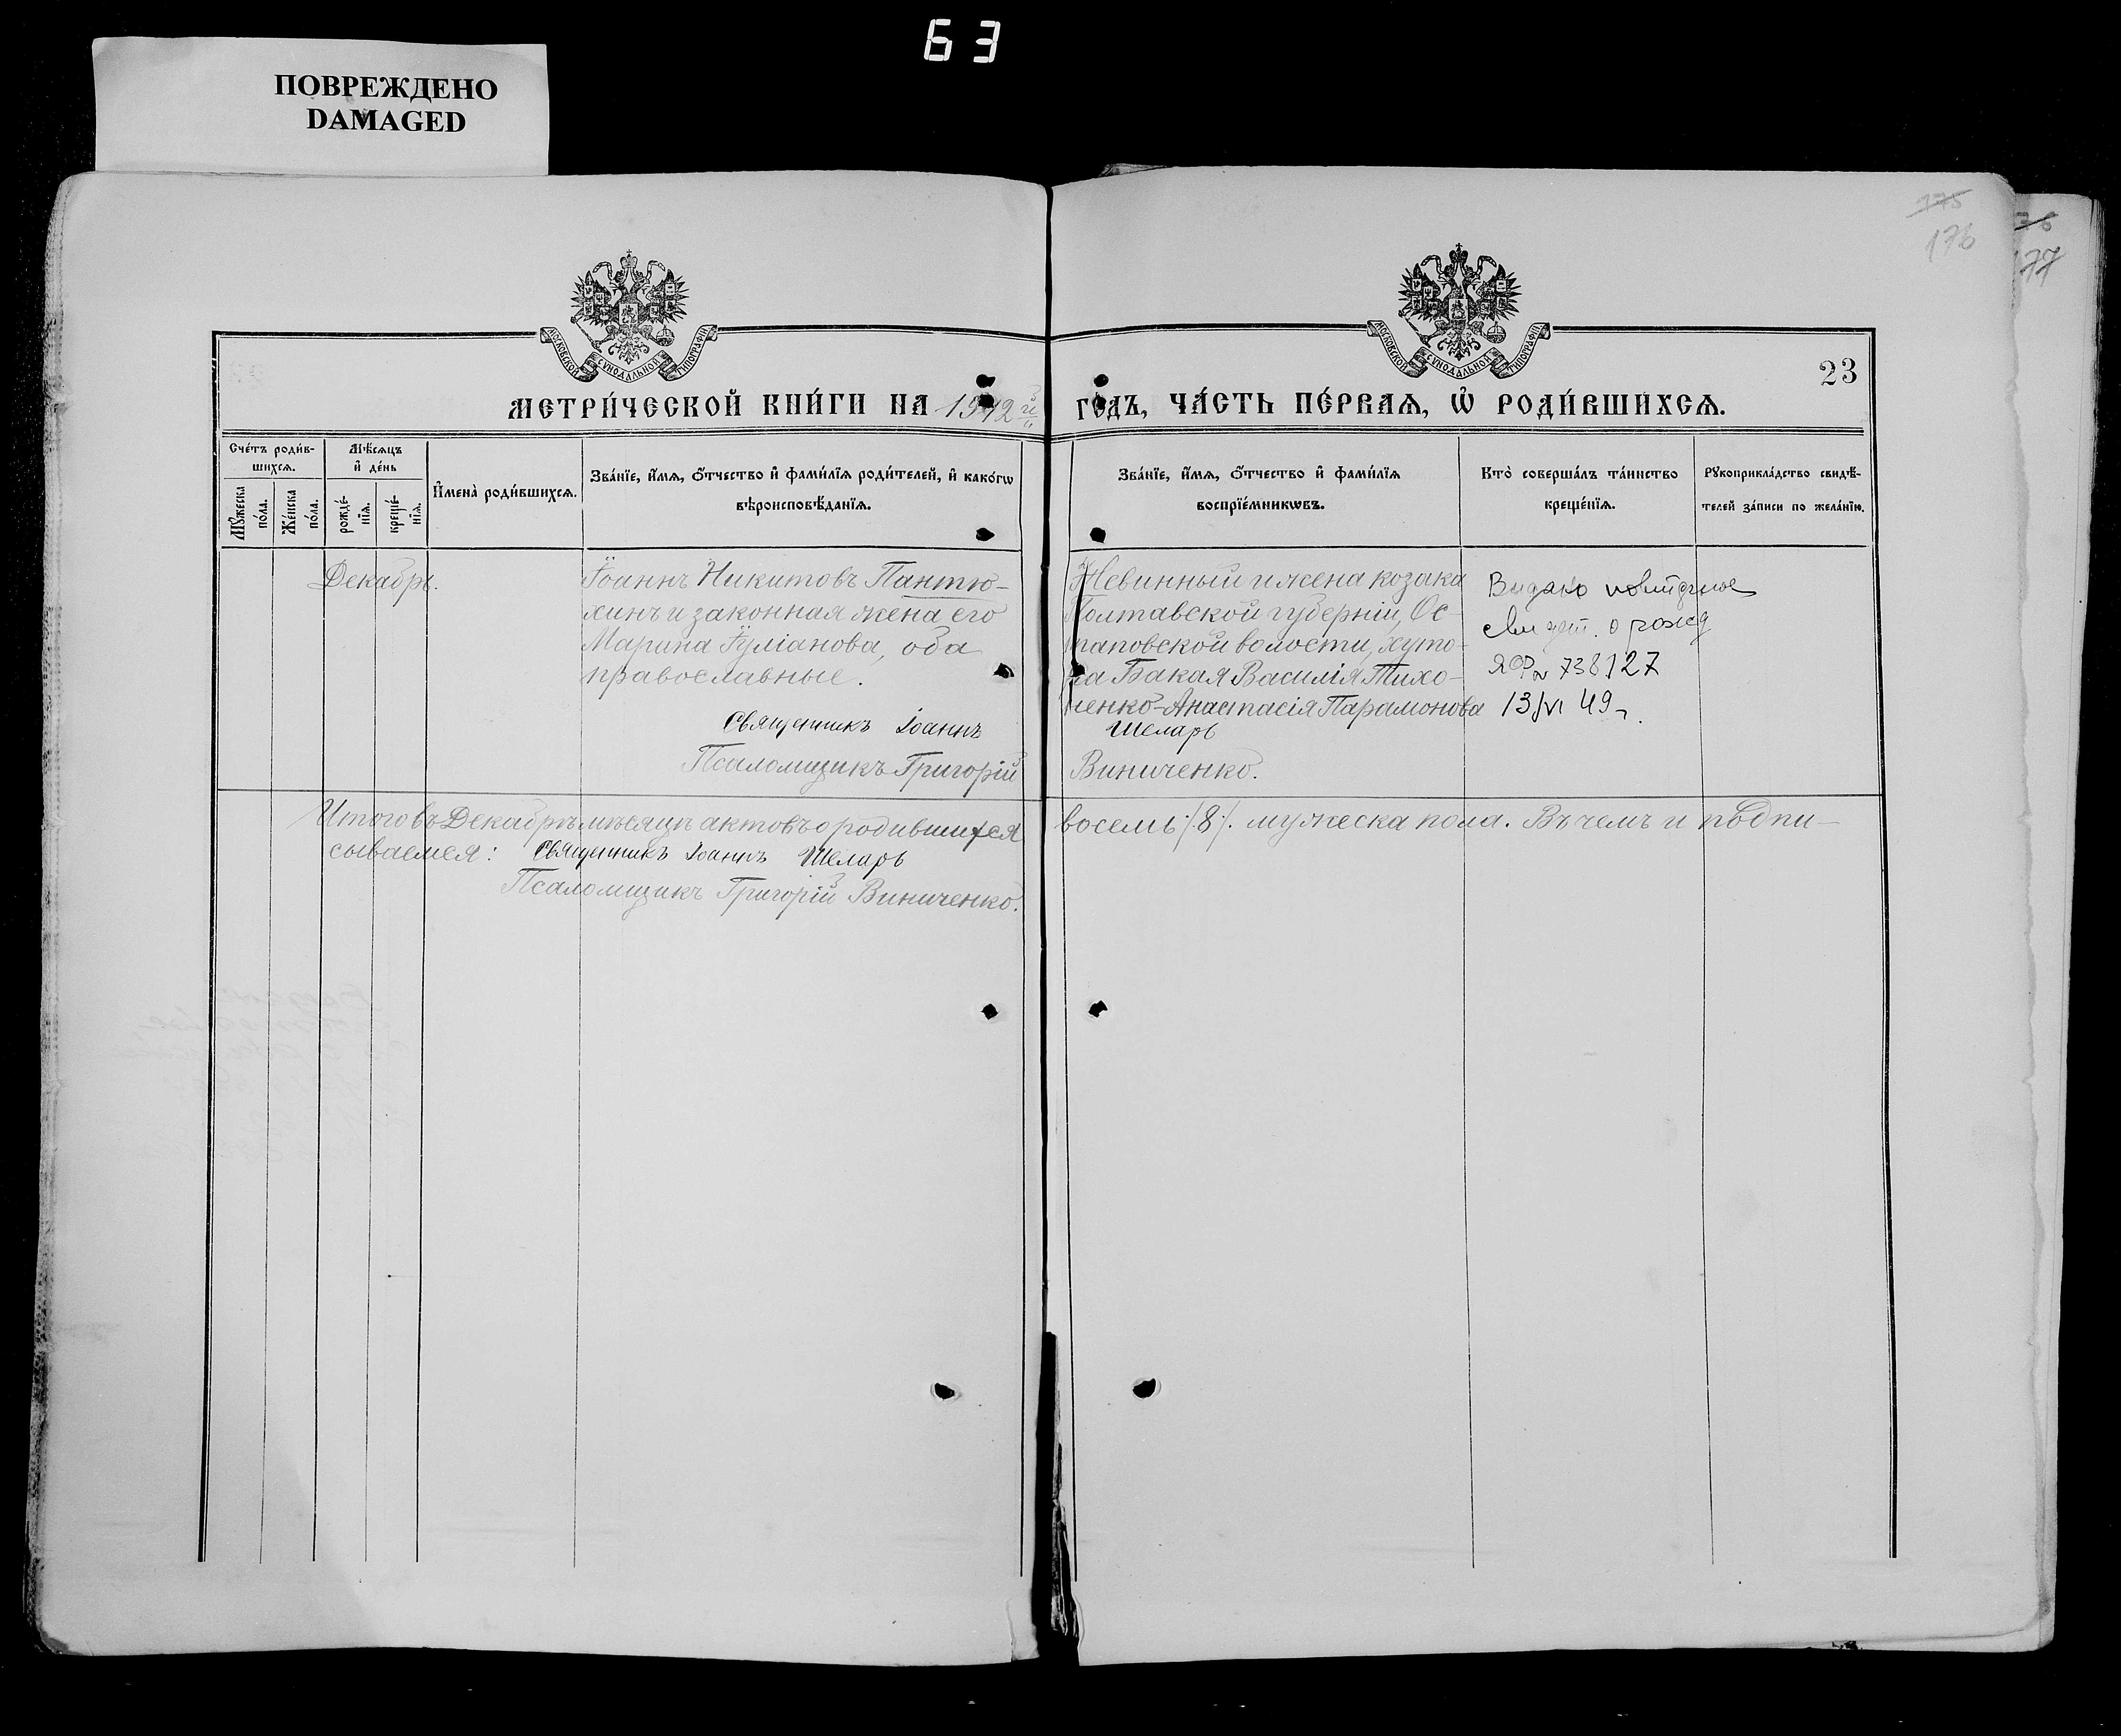 63
ПОВРЕЖДЕНО
DAMAGED
175
176
76
177
МОСКОВСКОЙ СѴНОДАЛЬНОЙ ТИПОГРАФІИ
МОСКОВСКОЙ СѴНОДАЛЬНОЙ ТИПОГРАФІИ
23
МЕТРИ́ЧЕСКОЙ КНИ́ГИ НА 1912й ГО́ДЪ, ЧА́СТЬ ПЕ́РВАѦ, Ѡ҆ РОДИ́ВШИХСѦ.
Сче́тъ роди́в-
шихсѧ.
Мѣ́сѧцъ
и҆ де́нь
Мꙋ́жеска по́ла.
Же́нска по́ла.
рожде́-нїѧ.
креще́-нїѧ.
И҆мена̀ роди́вшихсѧ.
Зва́нїе, и҆́мѧ, ѻ҆́тчество и҆ фами́лїѧ роди́телей, и҆ како́гѡ
вѣроисповѣ́данїѧ.
Зва́нїе, и҆́мѧ, ѻ҆́тчество и҆ фами́лїѧ
воспрїе́мникѡвъ.
Кто̀ соверша́лъ та́инство
креще́нїѧ.
Рꙋкоприкла́дство свидѣ́-
телей за́писи по жела́нїю.
Декабрь.
Іоаннъ Никитовъ Пантю-
хинъ и законная жена его
Марина Іуліанова, оба
православные.
Священникъ Іоаннъ Шеларь
Псаломщикъ Григорій Виниченко.
Невинный и жена козака
Полтавской губерніи, Ос-
таповской волости, хуто-
ра Бакая Василія Тихо-
ненко-Анастасія Парамонова
Видано повторное
свидет. о рожд
ЯФ № 738127
13/VI 49 г.
Итого въ Декабрѣ мѣсяцѣ актовъ о родившихся восемь /8/. мужеска пола. Въ чемъ и подпи-
сываемся: Священникъ Іоаннъ Шеларь
Псаломщикъ Григорій Виниченко.